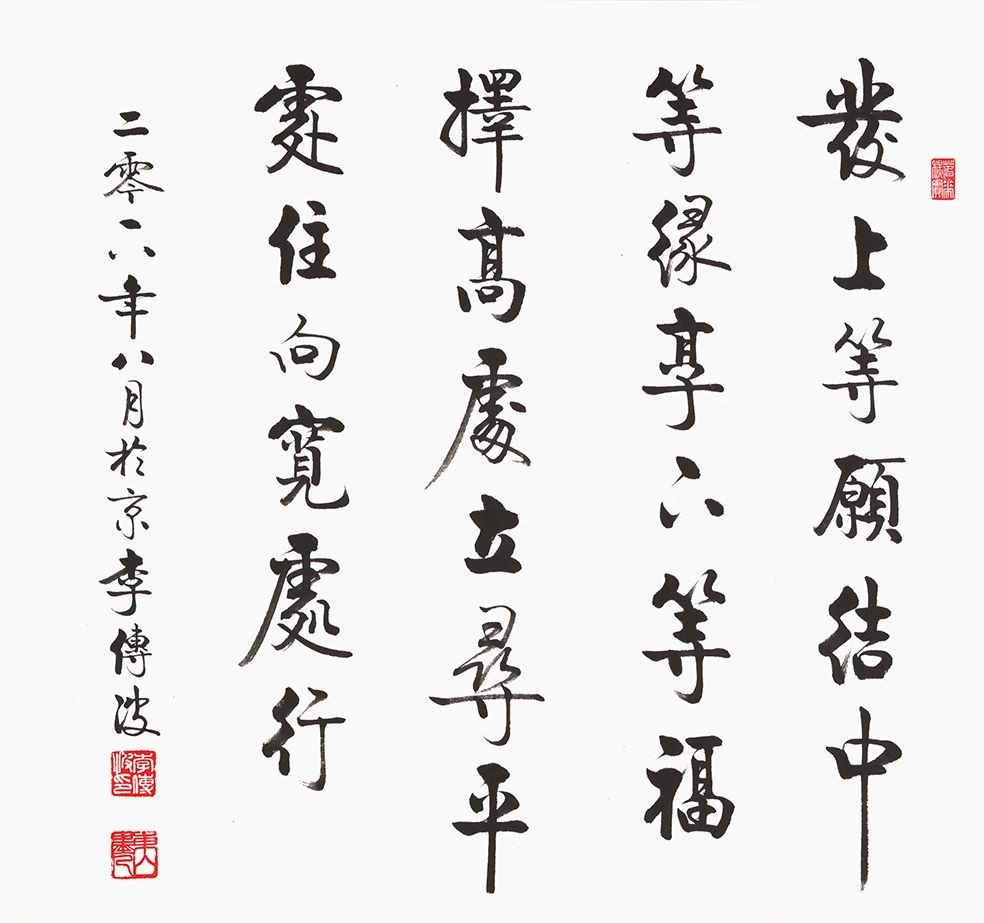 發上等願結中
等緣享下等福
擇高處立尋平
處住向寬處行
二零一六年八月於京李傳波